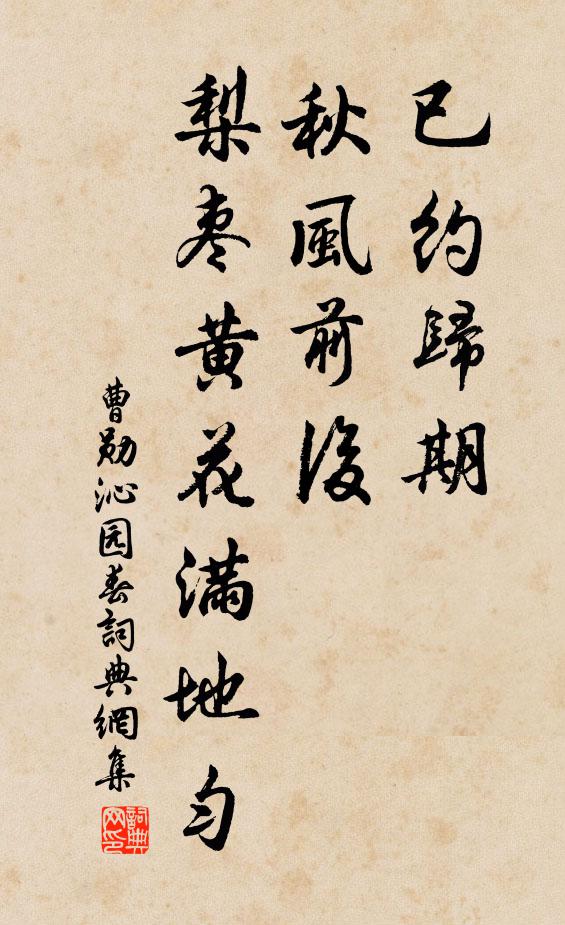 已約歸期
秋風前後
梨枣黄花满地匀
曹勋沁园春詞典網集
詞典网印